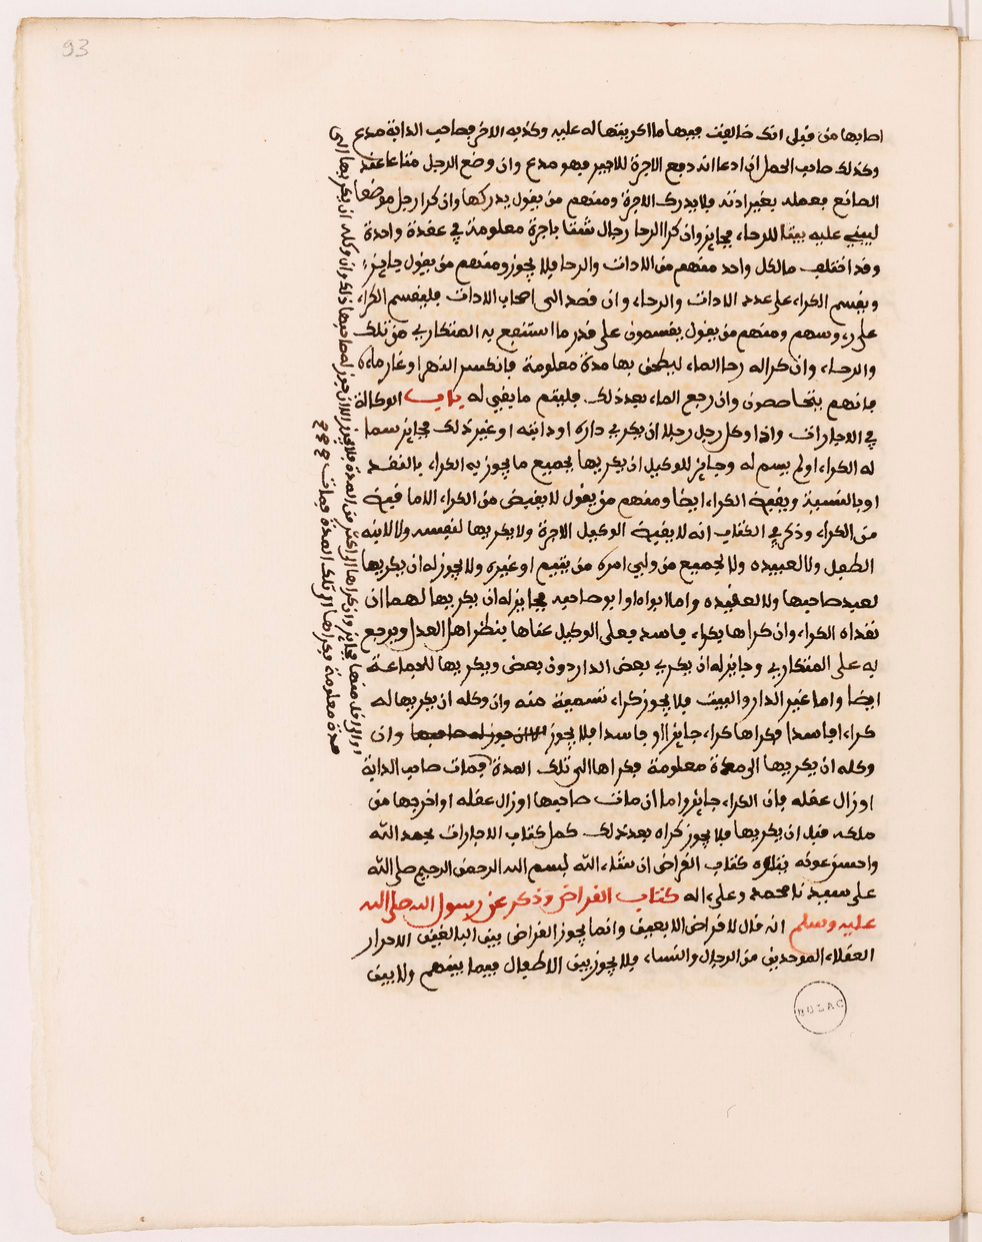 93
اصابها من قبلى انك خالفت فيها ما اكريتها له عليه وكذبه الاخر فصاحب الدابة مدع
وكذلك صاحب الحمل ان ادعا انه دفع الاجرة للاجير فهو مدع وان وضع الرجل متاعا عند
الصانع فعمله بغير اذنه فلا يدرك الاجرة ومنهم من يقول يدركها وان كرا رجل موضعا
ليبني عليه بيتا للرحاء فجايز وان كرا الرحا رجال شتا باجرة معلومة في عقدة واحدة
وقد اختلف ما لكل واحد منهم من الادات والرحا فلا يجوز ومنهم من يقول جايز
ويقسم الكراء على عدد الادات والرحاء وان قصد الى اصحاب الادات فليقسم الكراء
على رءوسهم ومنهم من يقول يقسمون على قدر ما استنفع به المتكاري من تلك
والرحاء وان كرا له رحا الماء ليطحن بها مدة معلومة فانكسر النهر او غار ماءه
فانهم يتحاصصون وان رجع الماء بعد ذلك فليتم ما بقي له باب الوكالة
في الاجارات واذا وكل رجل رجلا ان يكري داره او دابته او غير ذلك فجايز سما
له الكراء او لم يسم له وجايز للوكيل ان يكريها بجميع ما يجوز به الكراء بالنقد
او بالنسية وبقية الكراء ايضا ومنهم من يقول لا يقبض من الكراء الا ما قبضه
من الكراء وذكر في الكتاب انه لا بقية الوكيل الاجرة ولا يكريها لنفسه ولا لابنه
الطفل ولا لعبيده ولا لجميع من ولي امره من يتيم او غيره ولا يجوز له ان يكريها
لعبد صاحبها ولا لعقيده واما ابواه او ابو صاحبه فجايز له ان يكريها لهما ان
نقداه الكراء وان كراها بكراء فاسد فعلى الوكيل عناها ينظر اهل العدل ويرجع
به على المتكاري وجايز له ان يكري بعض الدار دون بعض ويكريها للجماعة
ايضا واما غير الدار والبيت فلا يجوز كراء تسمية منه وان وكله ان يكريها له
كراء فاسدا فكراها كراء جايزا او فاسدا فلا يجوز الا ان جوز له صاحبها وان
وكله ان يكريها الى مدة معلومة فكراها الى تلك المدة فمات صاحب الدابة
او زال عقله فان الكراء جايز واما ان مات صاحبها او زال عقله او اخرجها من
ملكه قبل ان يكريها فلا يجوز كراه بعد ذلك كمل كتاب الاجارات بحمد الله
واحسن عونه يتلوه كتاب القراض ان شاء الله بسم الله الرحمن الرحيم صلى الله
على سيدنا محمد وعلى اله كتاب القراض وذكر عن رسول الله صلى الله
عليه وسلم انه قال لا قراض الا بعين وانما يجوز القراض بين البالغين الاحرار
العقلاء الموحدين من الرجال والنساء فلا يجوز بين الاطفال فيما بينهم ولا بين
ذلك وان وكله ان يكريها الى
مدة معلومة فكراها الى تلك المدة فمات
BULAC